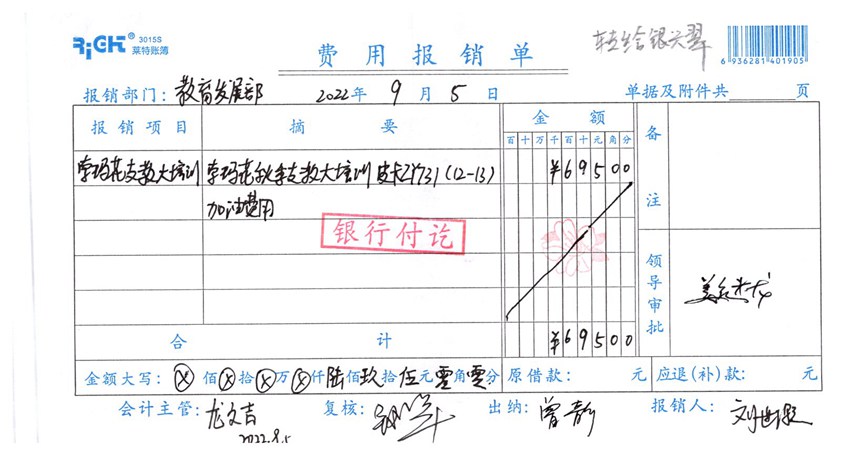 RiGHT® 3015S
莱特账簿
费用报销单
转给银兴翠
6 936281 401905
报销部门：教育发展部 2022年9月5日 单据及附件共 页
报销项目 摘要 金额 备注
百十万千百十元角分
索玛花支教大培训 索玛花秋季支教大培训 皮卡ZY731 (12-13) ¥69500
加油费用
银行付讫
领导审批
合计 ¥69500
金额大写：ⓧ佰ⓧ拾ⓧ万ⓧ仟陆佰玖拾伍元零角零分 原借款： 元 应退(补)款： 元
会计主管：龙文吉 复核： 出纳：曾静 报销人：
2022.9.5